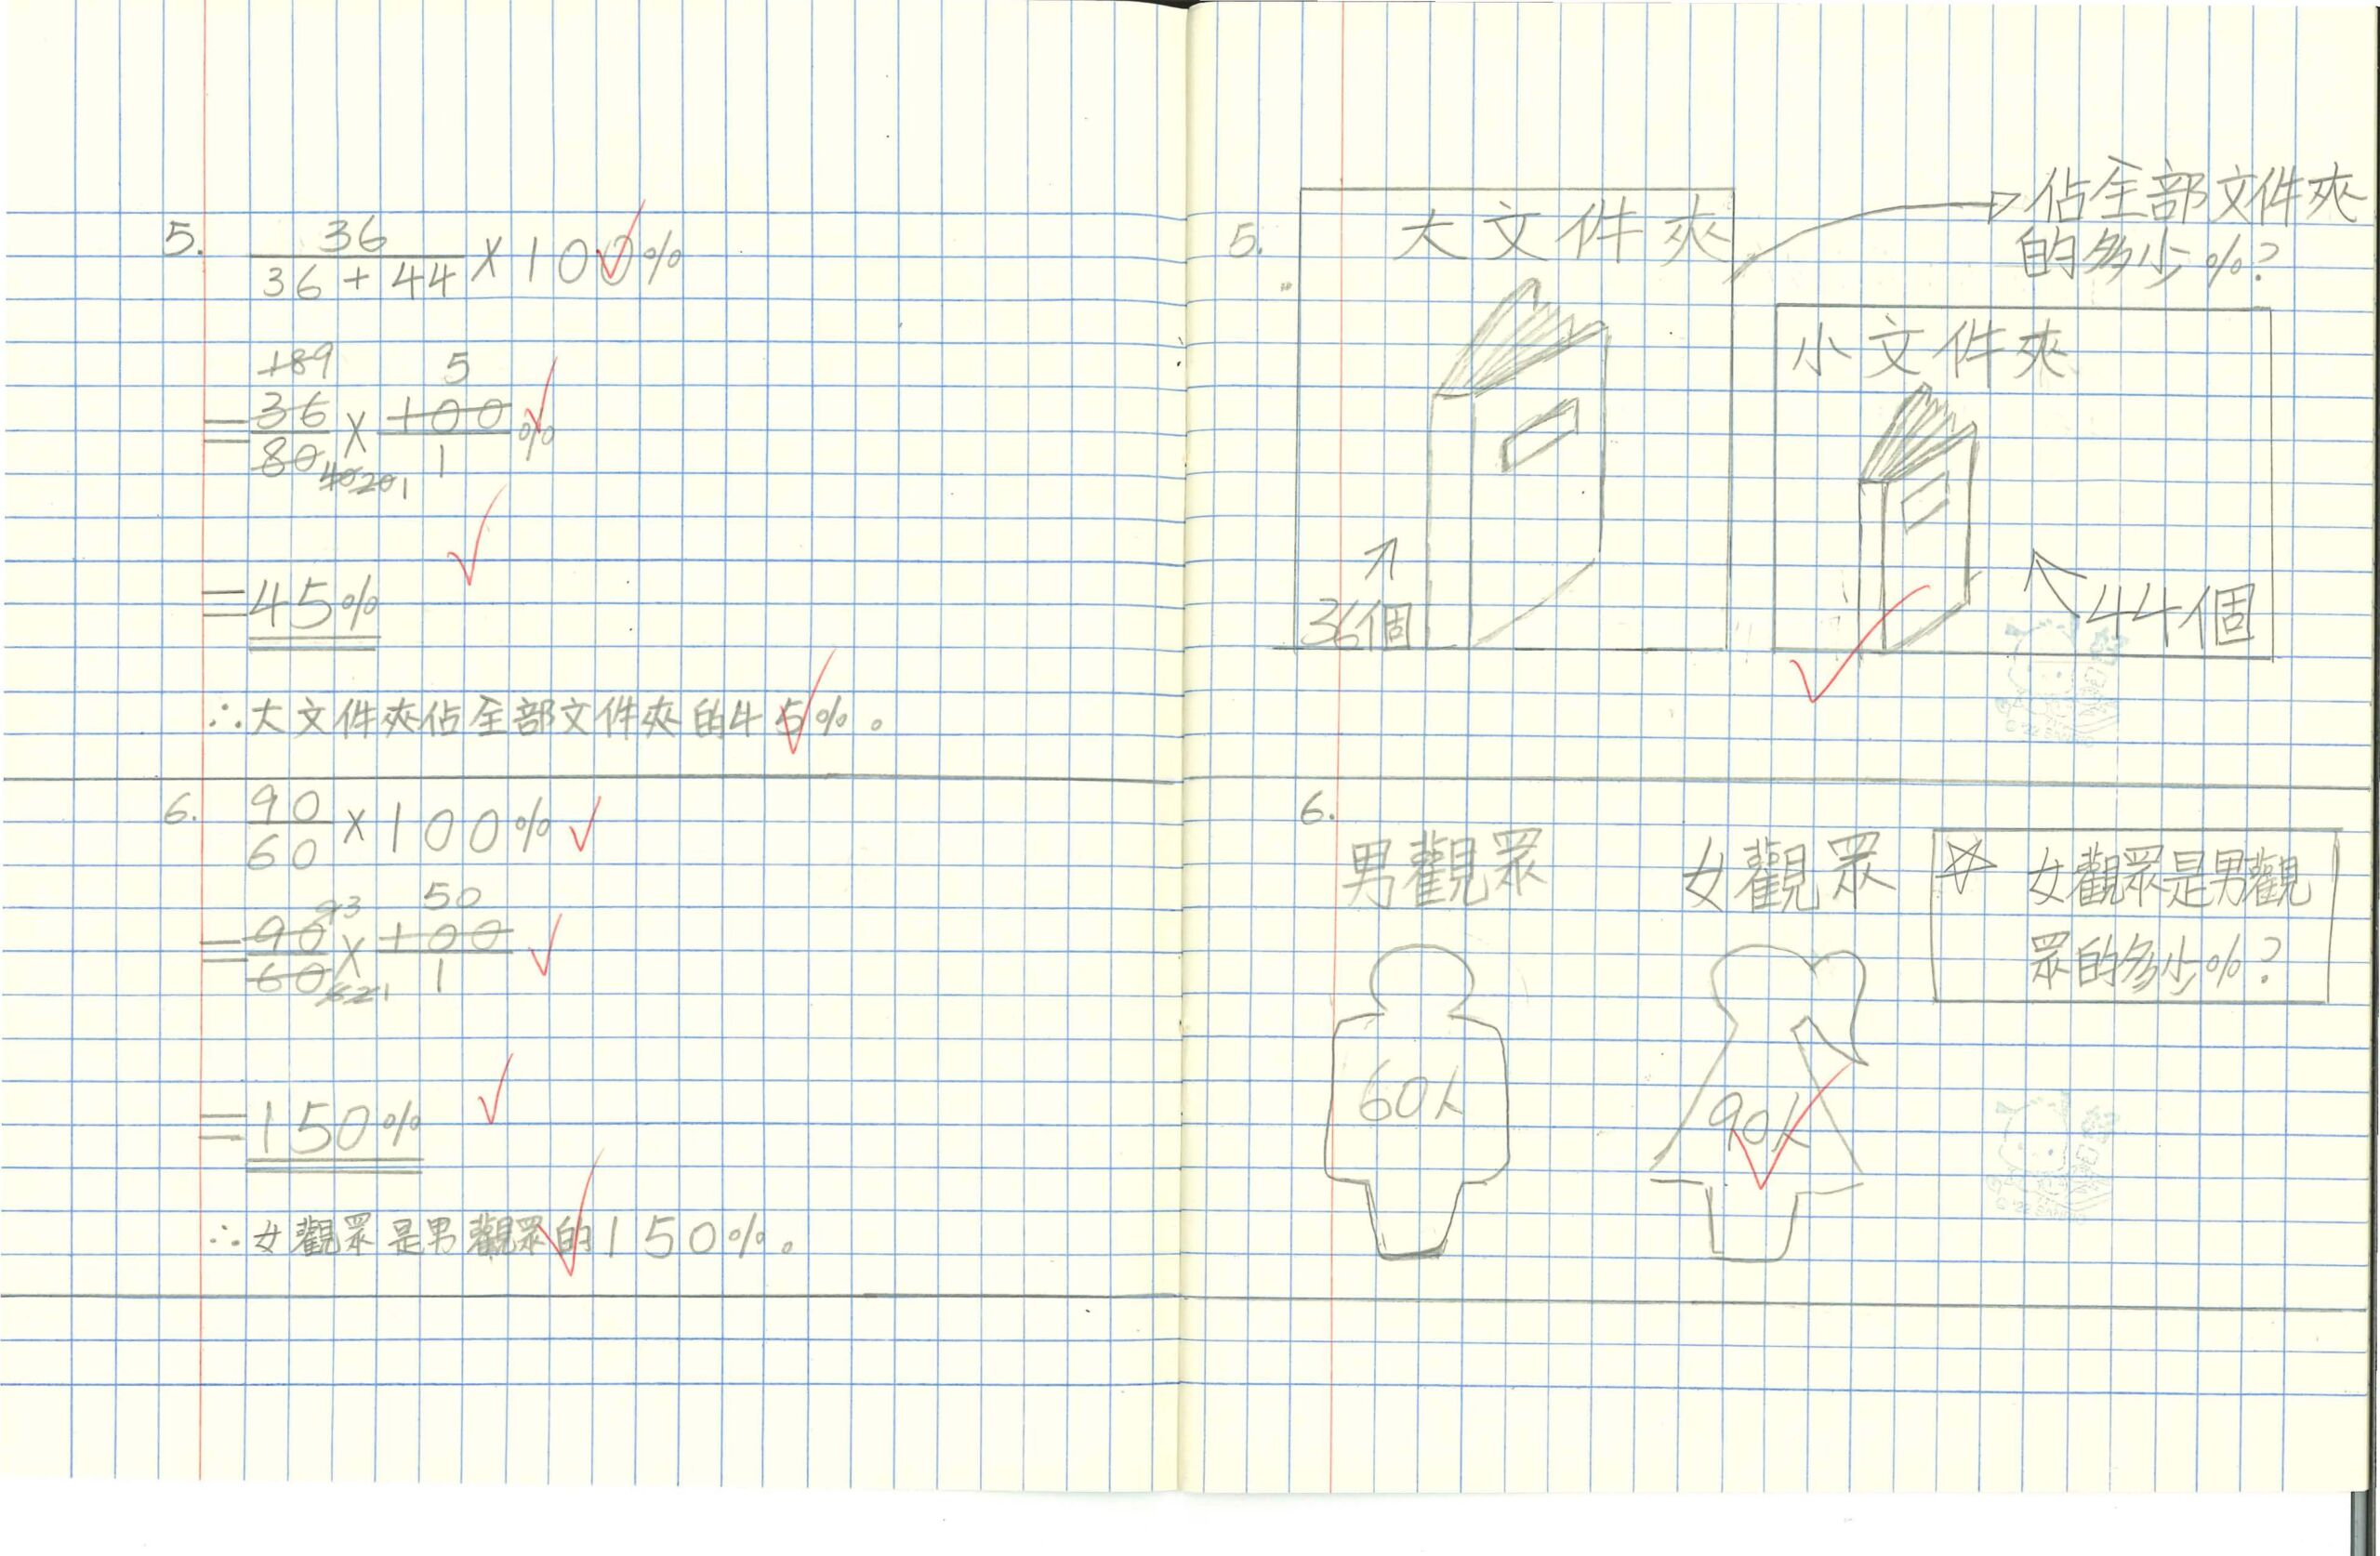 5.
36
36 + 44 × 100%
189 5
= 36 × 100 %
80 40 20 1 1
= 45%
∴ 大文件夾佔全部文件夾的45%。
6. 90
60 × 100%
93 50
= 90 × 100
60 6 2 1 1
= 150%
∴ 女觀眾是男觀眾的150%。
5. 大文件夾
佔全部文件夾
的多少%?
小文件夾
36個
44個
6.
男觀眾 女觀眾
女觀眾是男觀
眾的多少%?
60人
90人